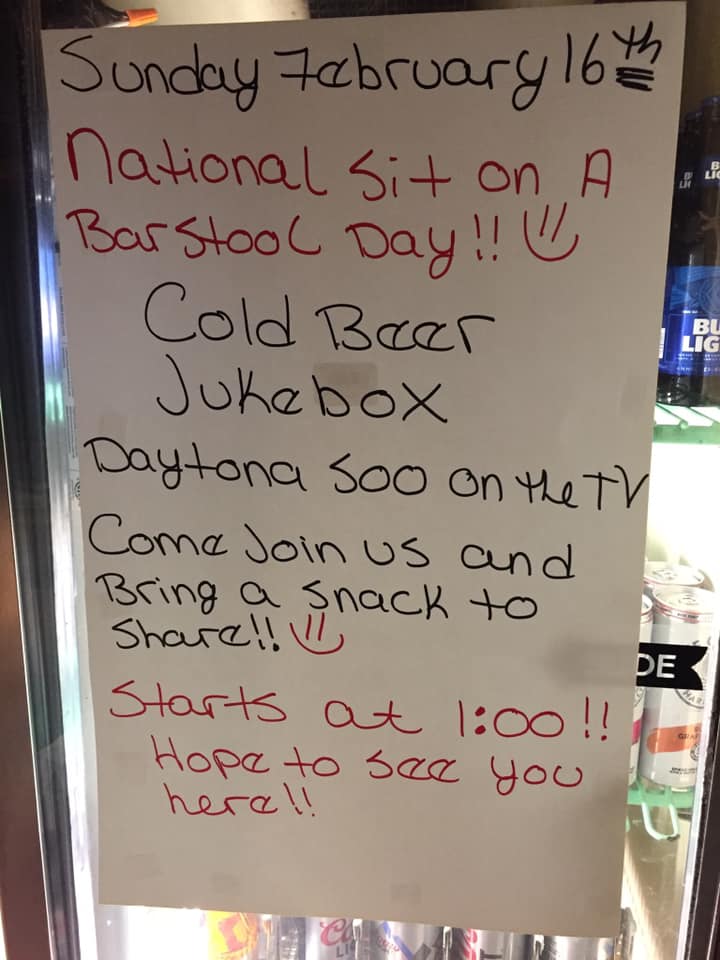 Sunday February 16th
National Sit on A
Barstool Day!! :)
Cold Beer
Jukebox
Daytona 500 on the TV
Come Join us and
Bring a snack to
Share!! :)
Starts at 1:00!!
Hope to see you
here!!
BU
LIG
DE